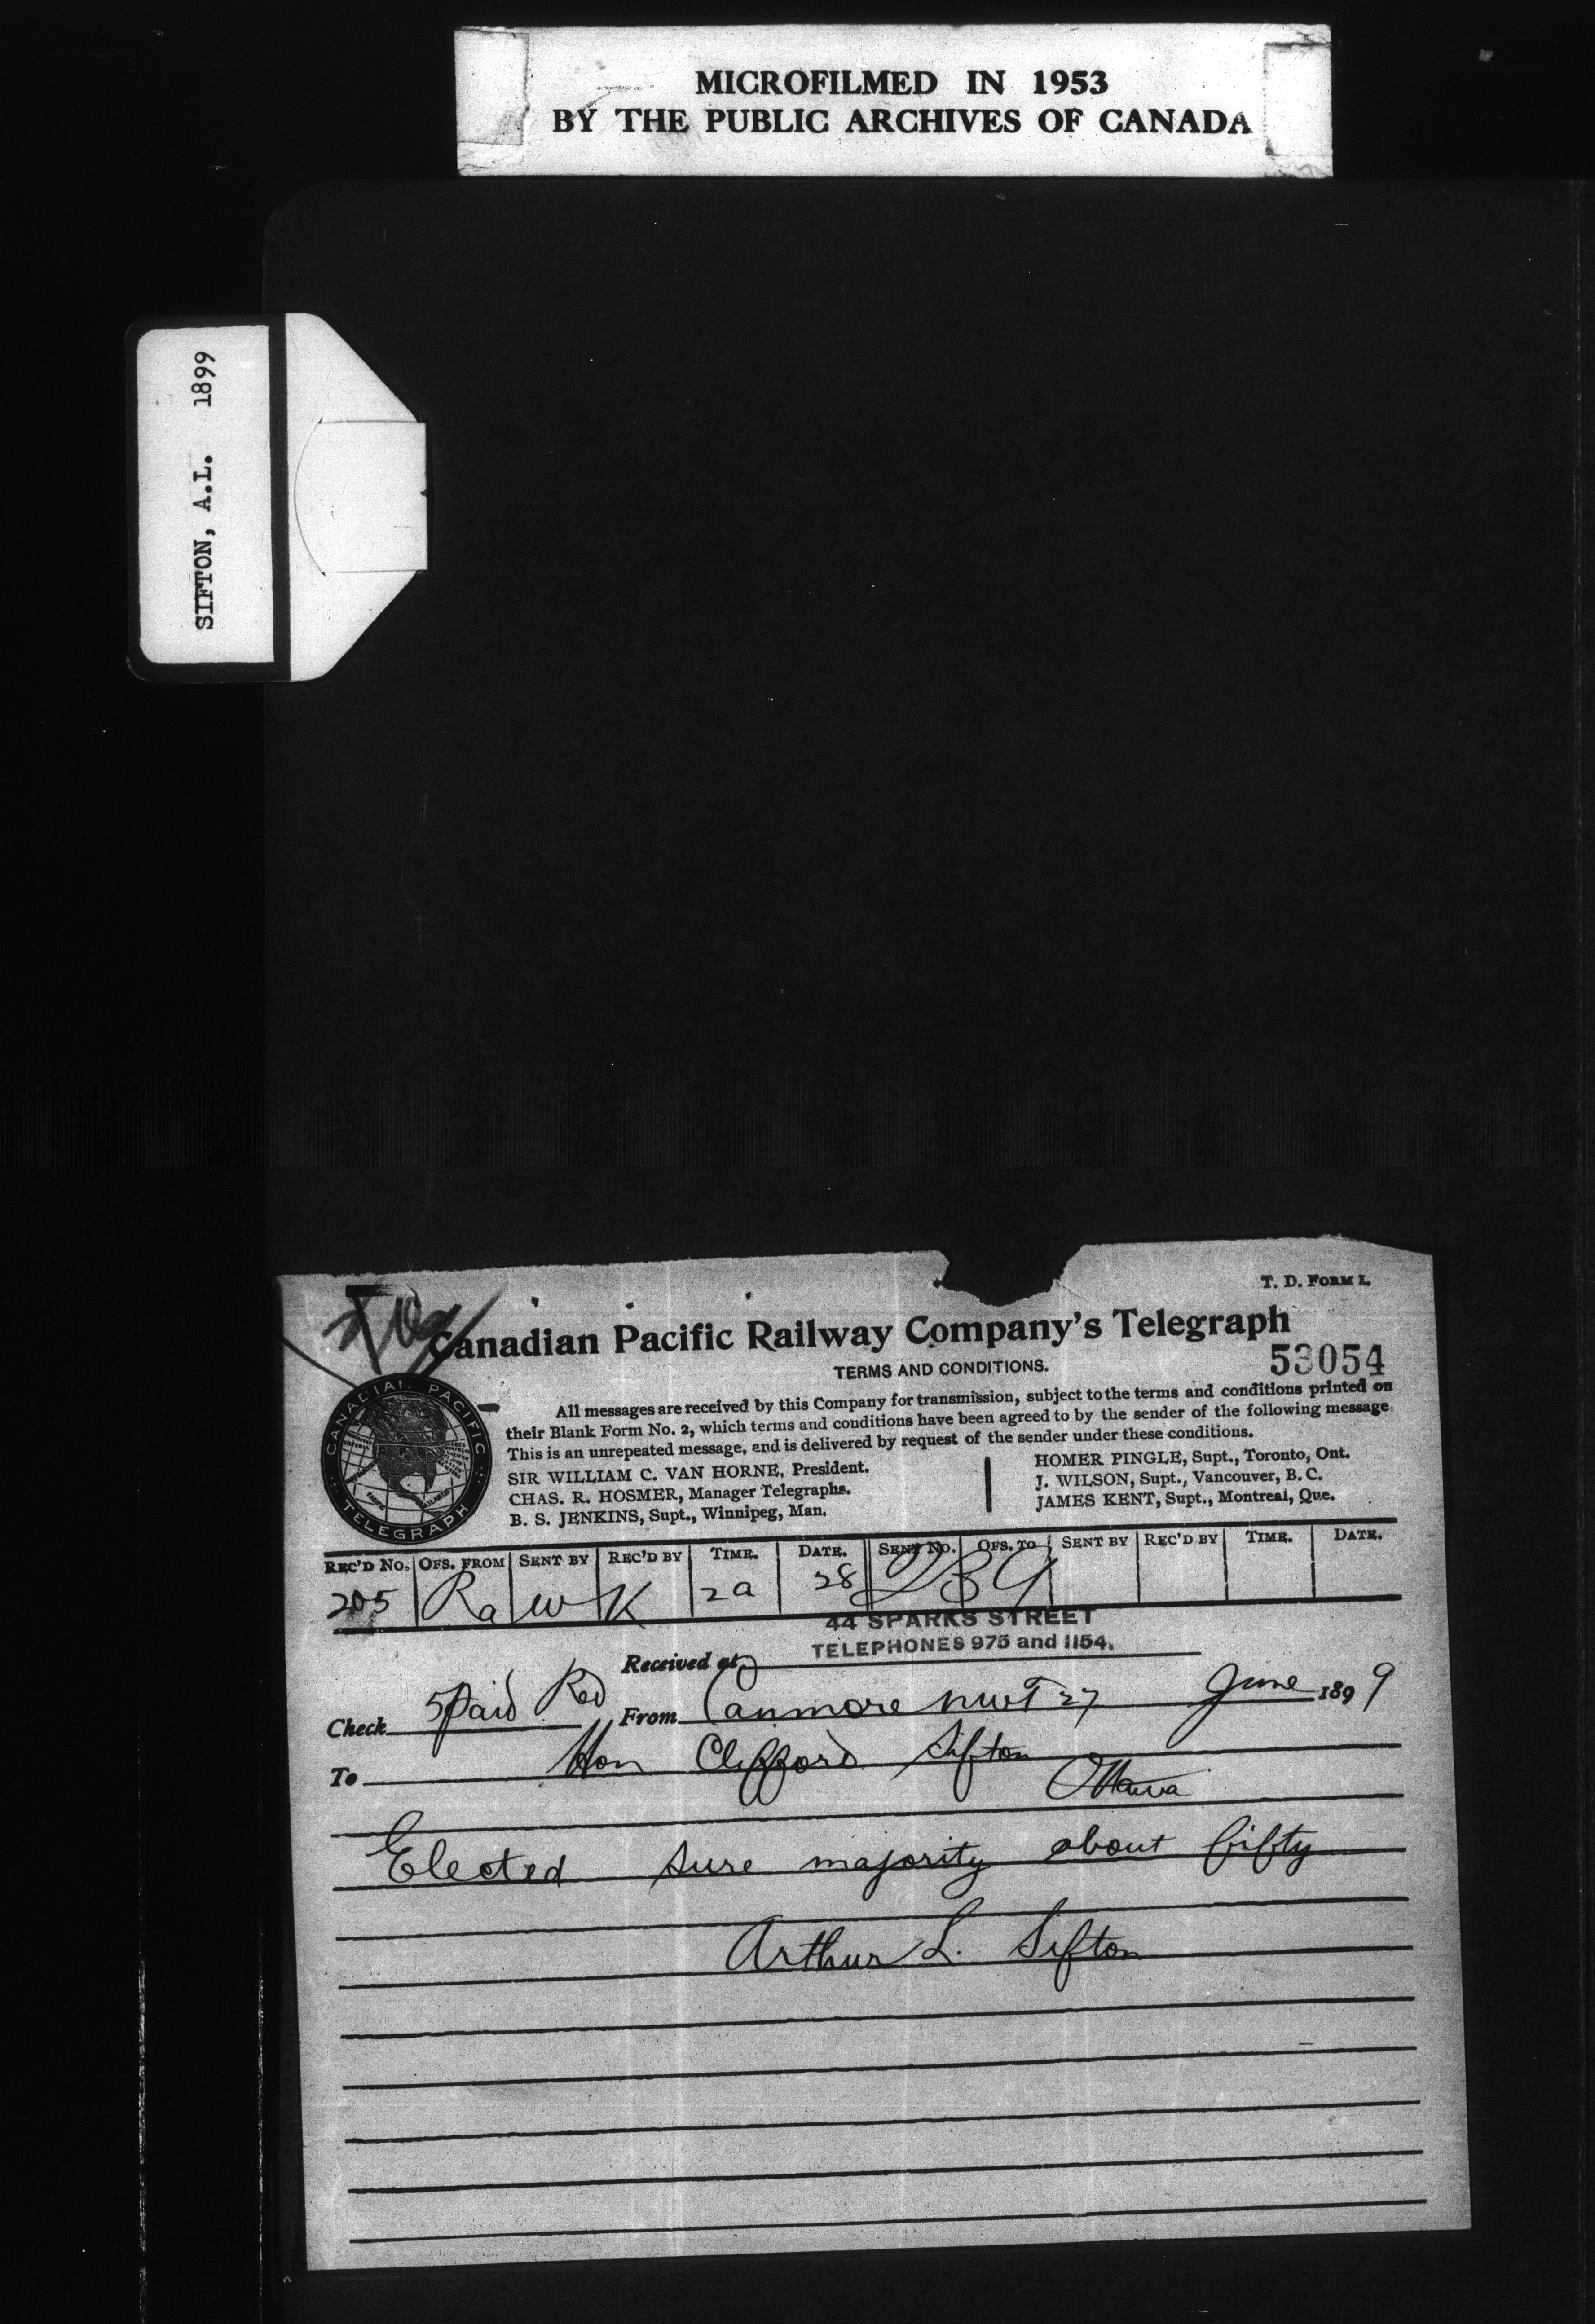 MICROFILMED IN 1953
BY THE PUBLIC ARCHIVES OF CANADA
SIFTON, A.L. 1899
T. D. FORM 1.
Canadian Pacific Railway Company's Telegraph
TERMS AND CONDITIONS.
53054
CANADIAN PACIFIC
TELEGRAPH
All messages are received by this Company for transmission, subject to the terms and conditions printed on
their Blank Form No. 2, which terms and conditions have been agreed to by the sender of the following message
This is an unrepeated message, and is delivered by request of the sender under these conditions.
SIR WILLIAM C. VAN HORNE, President.
CHAS. R. HOSMER, Manager Telegraphs.
B. S. JENKINS, Supt., Winnipeg, Man.
HOMER PINGLE, Supt., Toronto, Ont.
J. WILSON, Supt., Vancouver, B. C.
JAMES KENT, Supt., Montreal, Que.
REC'D NO. OFS. FROM SENT BY REC'D BY TIME. DATE. SENT NO. OFS. TO SENT BY REC'D BY TIME. DATE.
205 Ra W K 2a 28
44 SPARKS STREET
TELEPHONES 975 and 1154.
Received at
Check 5 Paid From Canmore NWT 27 June 1899
To Hon Clifford Sifton
Ottawa
Elected sure majority about fifty
Arthur L. Sifton